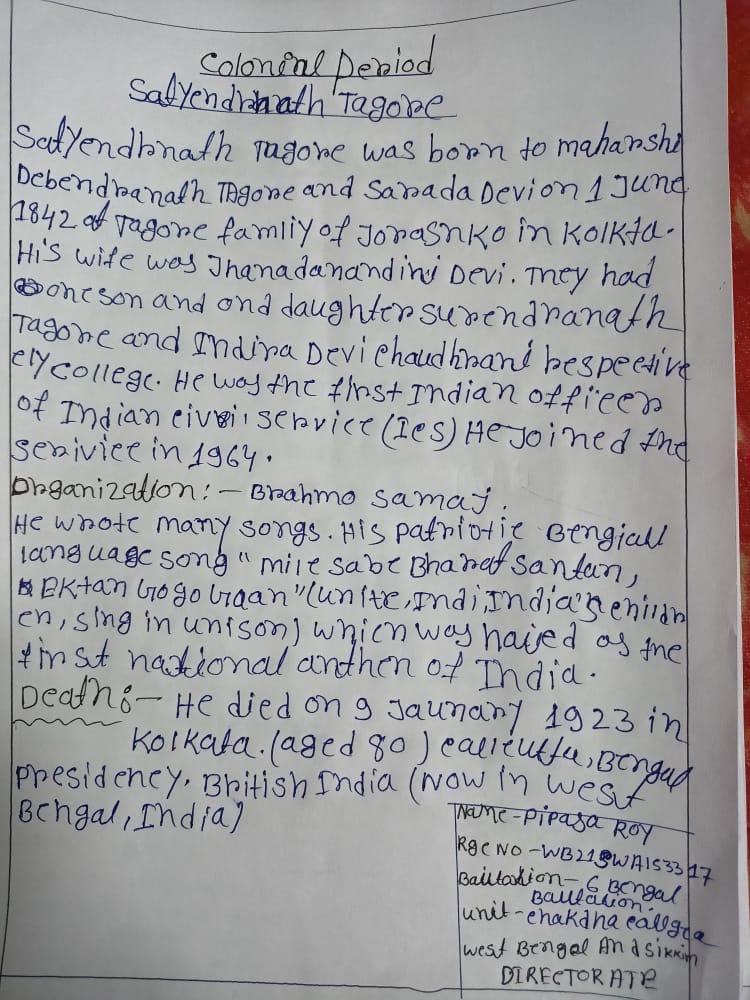 Colonial Period
Satyendranath Tagore
Satyendhnath Tagore was born to maharshi
Debendranath TAgore and Sarada Devi on 1 June
1842 at Tagore famliy of Jorasnko in Kolkta.
His wife was Jhanadanandini Devi. They had
one son and ond daughter surendranath
Tagore and Indira Devi chaudhrani respective
ely college. He was the first Indian officer
of Indian civil service (Ics) He joined the
serivice in 1964.
Organization:- Brahmo samaj.
He wrote many songs. His patriotic Bengiall
language song "mile sabe Bharat santan,
Ektan Gogo Gaan" (unite, Indi, India's childr
en, sing in unison) which was haied as the
first national anthen of India.
Death:- He died on 9 Jaunary 1923 in
Kolkata. (aged 80) calicutta, Bengal
Presidency. British India (Now in west
Bengal, India)
Name - Pipasa ROY
Rge NO - WB21SWA153317
Baitastion - 6 Bengal
Baitalion.
unit - chakdha callgea
west Bengal And sikkim
DIRECTORATE